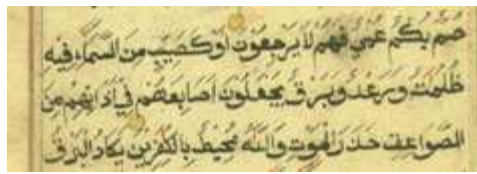 صُمٌّ بُكْمٌ عُمْيٌ فَهُمْ لَا يَرْجِعُوْنَ اَوْ كَصَيِّبٍ مِنَ السَّمَآءِ فِيْهِ
ظُلُمٰتٌ وَرَعْدٌ وَبَرْقٌ يَجْعَلُوْنَ اَصَابِعَهُمْ فِيْ اٰذَانِهِمْ مِنَ
الصَّوَاعِقِ حَذَرَ الْمَوْتِ وَاللّٰهُ مُحِيْطٌ بِالْكٰفِرِيْنَ يَكَادُ الْبَرْقُ